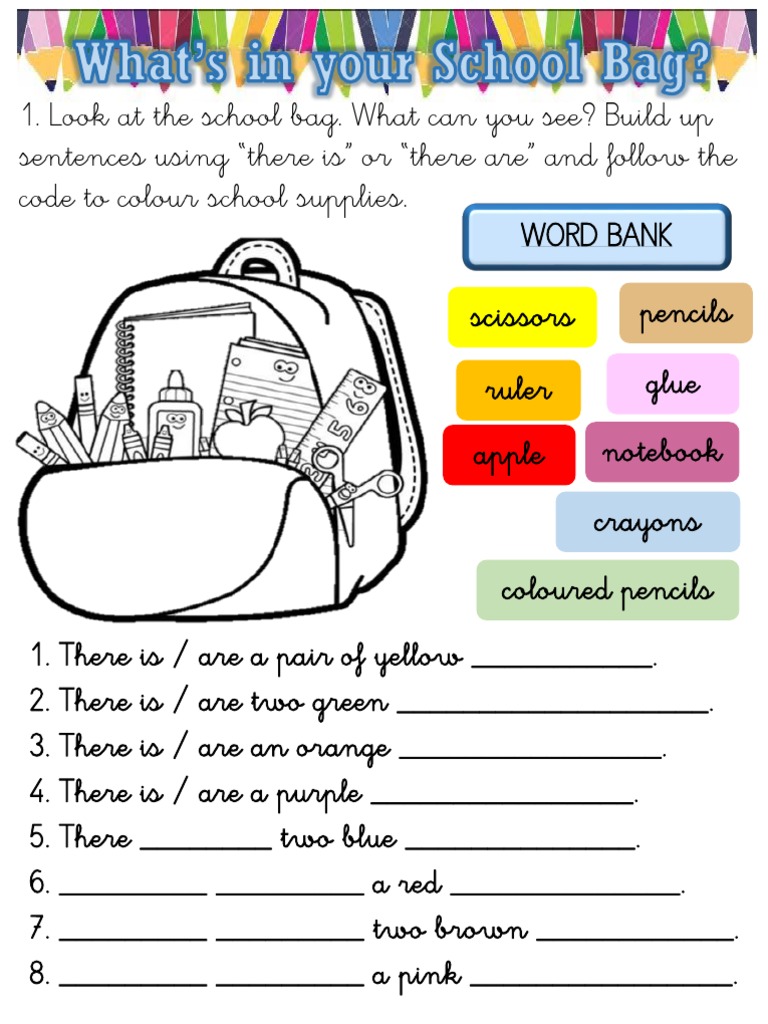 What's in your School Bag?
1. Look at the school bag. What can you see? Build up
sentences using “there is” or “there are” and follow the
code to colour school supplies.
WORD BANK
scissors
pencils
ruler
glue
apple
notebook
crayons
coloured pencils
5 6 8
1. There is / are a pair of yellow ____________.
2. There is / are two green _____________________.
3. There is / are an orange __________________.
4. There is / are a purple __________________.
5. There _________ two blue ________________.
6. __________ __________ a red ________________.
7. __________ __________ two brown _____________.
8. __________ __________ a pink __________________.